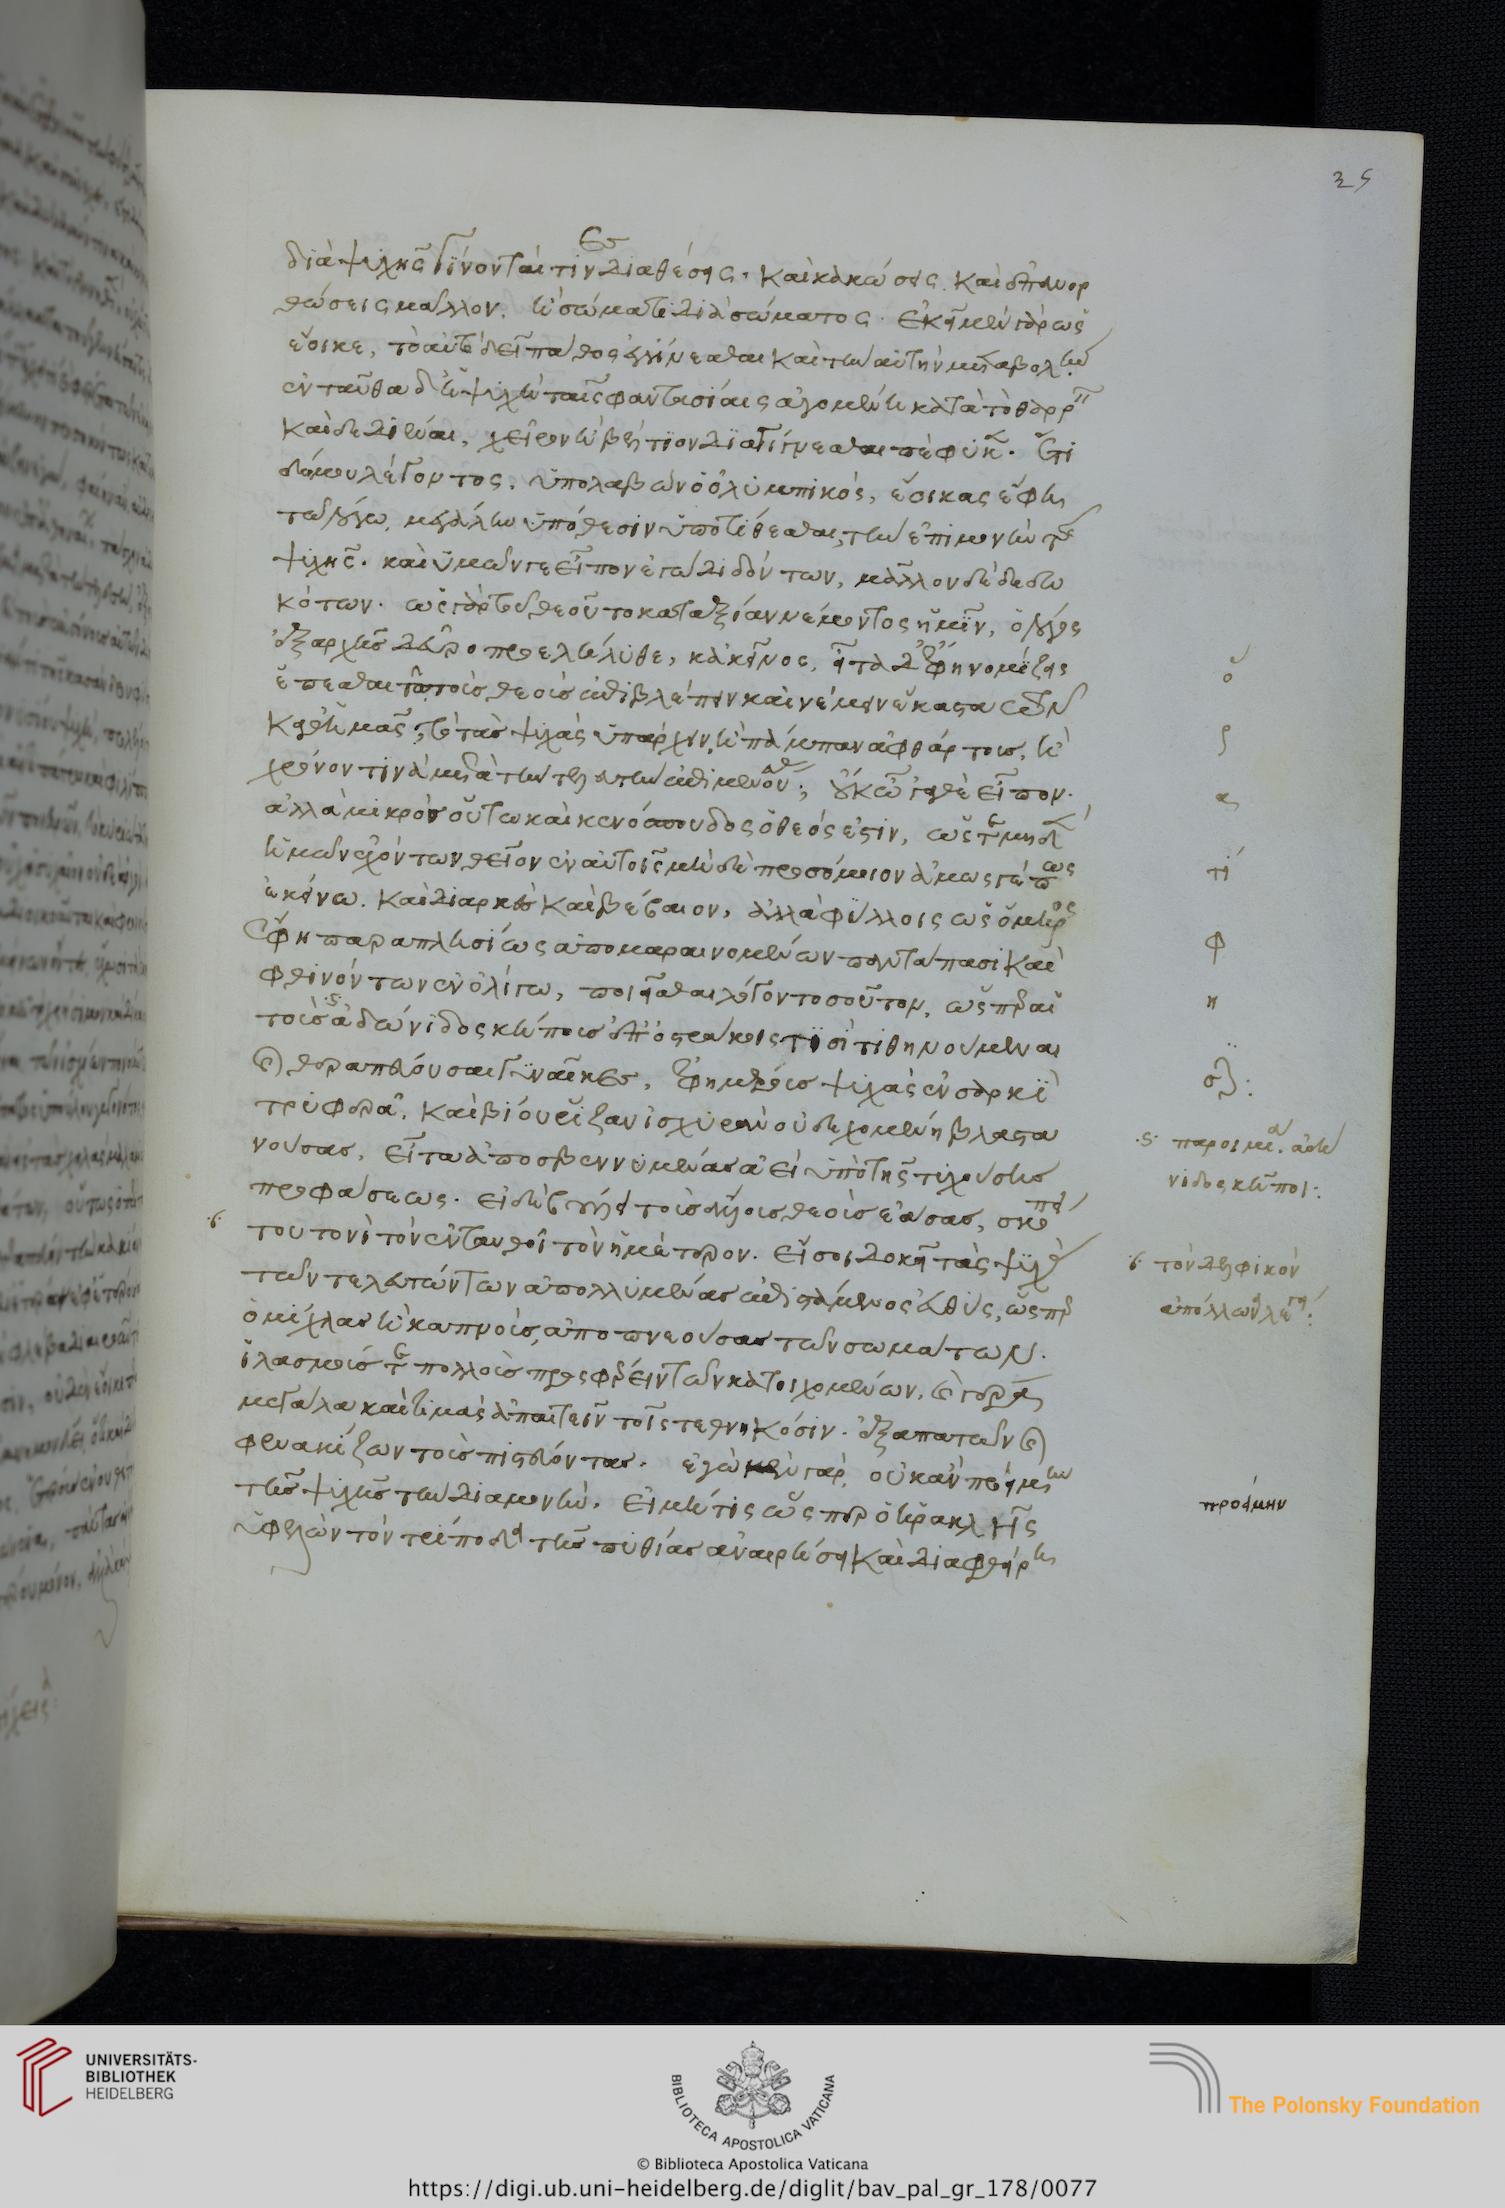 35
διὰ ψυχῆς γίνονταί τινες διαθέσεις. καὶ κακώσεις καὶ ἐπανορ
θώσεις μᾶλλον. ἢ σώματι διὰ σώματος. ἐκεῖ μὲν γὰρ ὡς
ἔοικε, τὸ αὐτὸ δεῖ πάθος ἐγγίνεσθαι καὶ τὴν αὐτὴν μεταβολήν.
ἐνταῦθα δ' ἡ ψυχὴ ταῖς φαντασίαις ἀγομένη κατὰ τὸ θαρρεῖν
καὶ δεδιέναι, χείρων ἢ βελτίον διαγίγνεσθαι πέφυκεν. ἔτι
δ' ἐμοῦ λέγοντος. ὑπολαβὼν ὁ ὀλύμπικος, ἔοικας ἔφη
τῷ λόγῳ, μεγάλην ὑπόθεσιν ὑποτίθεσθαι, τὴν ἐπιμονὴν τῆς
ψυχῆς. καὶ ὑμῶν γε εἶπον ἐγὼ διδόντων, μᾶλλον δὲ δεδω
κότων. ὡς γὰρ τοῦ θεοῦ τὸ κατ' ἀξίαν νέμοντος ἡμῖν, ὁ λόγος
ἐξ ἀρχῆς δεῦρο προελήλυθε, κἀκεῖνος, εἶτα δ' ἔφη νομίζεις
ἕπεσθαι τὸ τοὺς θεοὺς ἐπιβλέπειν καὶ νέμειν ἕκαστα τῶν
καθ' ἡμᾶς, τὸ τὰς ψυχὰς ὑπάρχειν, ἢ πάμπαν ἀφθάρτους, ἢ
χρόνον τινὰ μετὰ τὴν τελευτὴν ἐπιμενούσας; οὐκ ὦ 'γαθὲ εἶπον.
ἀλλὰ μικρὸς οὕτω καὶ κενόσπουδος ὁ θεός ἐστιν, ὥστε μηδὲν
ἡμῶν ἐχόντων θεῖον ἐν αὑτοῖς μηδὲ προσόμοιον ἁμωσγέπως
ἐκείνῳ. καὶ διαρκὲς καὶ βέβαιον, ἀλλὰ φύλλοις ὡς ὅμηρος
ἔφη παραπλησίως ἀπομαραινομένων παντάπασι καὶ
φθινόντων ἐν ὀλίγῳ, ποιεῖσθαι λόγον τοσοῦτον, ὥσπερ αἱ
τοὺς ἀδώνιδος κήπους ἐπ' ὀστράκοις τισὶ τιθηνούμεναι
καὶ θεραπεύουσαι γυναῖκες, ἐφημέρους ψυχὰς ἐν σαρκὶ
τρυφερᾷ, καὶ βίου ῥίζαν ἰσχυρὰν οὐ δεχομένῃ βλαστα
νούσας, εἶτα ἀποσβεννυμένας ἀεὶ ὑπὸ τῆς τυχούσης
προφάσεως. εἰ δὲ βούλει τοὺς ἄλλους θεοὺς ἐάσας, σκόπει
τουτονὶ τὸν ἐνταυθοῖ τὸν ἡμέτερον. εἴ σοι δοκεῖ τὰς ψυχὰς
τῶν τελευτώντων ἀπολλυμένας ἐπιστάμενος εὐθύς, ὥσπερ
ὁμίχλας ἢ καπνούς, ἀποπνεούσας τῶν σωμάτων.
ἱλασμούς τε πολλοὺς προσφέρειν τῶν κατοιχομένων, καὶ γέρα
μεγάλα καὶ τιμὰς ἀπαιτεῖν τοῖς τεθνηκόσιν. ἐξαπατῶν καὶ
φενακίζων τοὺς πιστεύοντας. ἐγὼ μὲν γὰρ, οὐκ ἂν προείμην
τῆς ψυχῆς τὴν διαμονήν, εἰ μή τις ὥσπερ ὁ ἡρακλῆς
ὑφελὼν τὸν τρίποδα τῆς πυθίας ἀναιρήσει καὶ διαφθείρῃ
οὐ
ς
ας
τί
φ
η
σὶ:
ς παροιμία. ἀδω
νιδος κῆποι:
ϐ τὸν δελφικὸν
ἀπόλλωνα λέγει:
προείμην
UNIVERSITÄTS-
BIBLIOTHEK
HEIDELBERG
BIBLIOTECA APOSTOLICA VATICANA
The Polonsky Foundation
© Biblioteca Apostolica Vaticana
https://digi.ub.uni-heidelberg.de/diglit/bav_pal_gr_178/0077